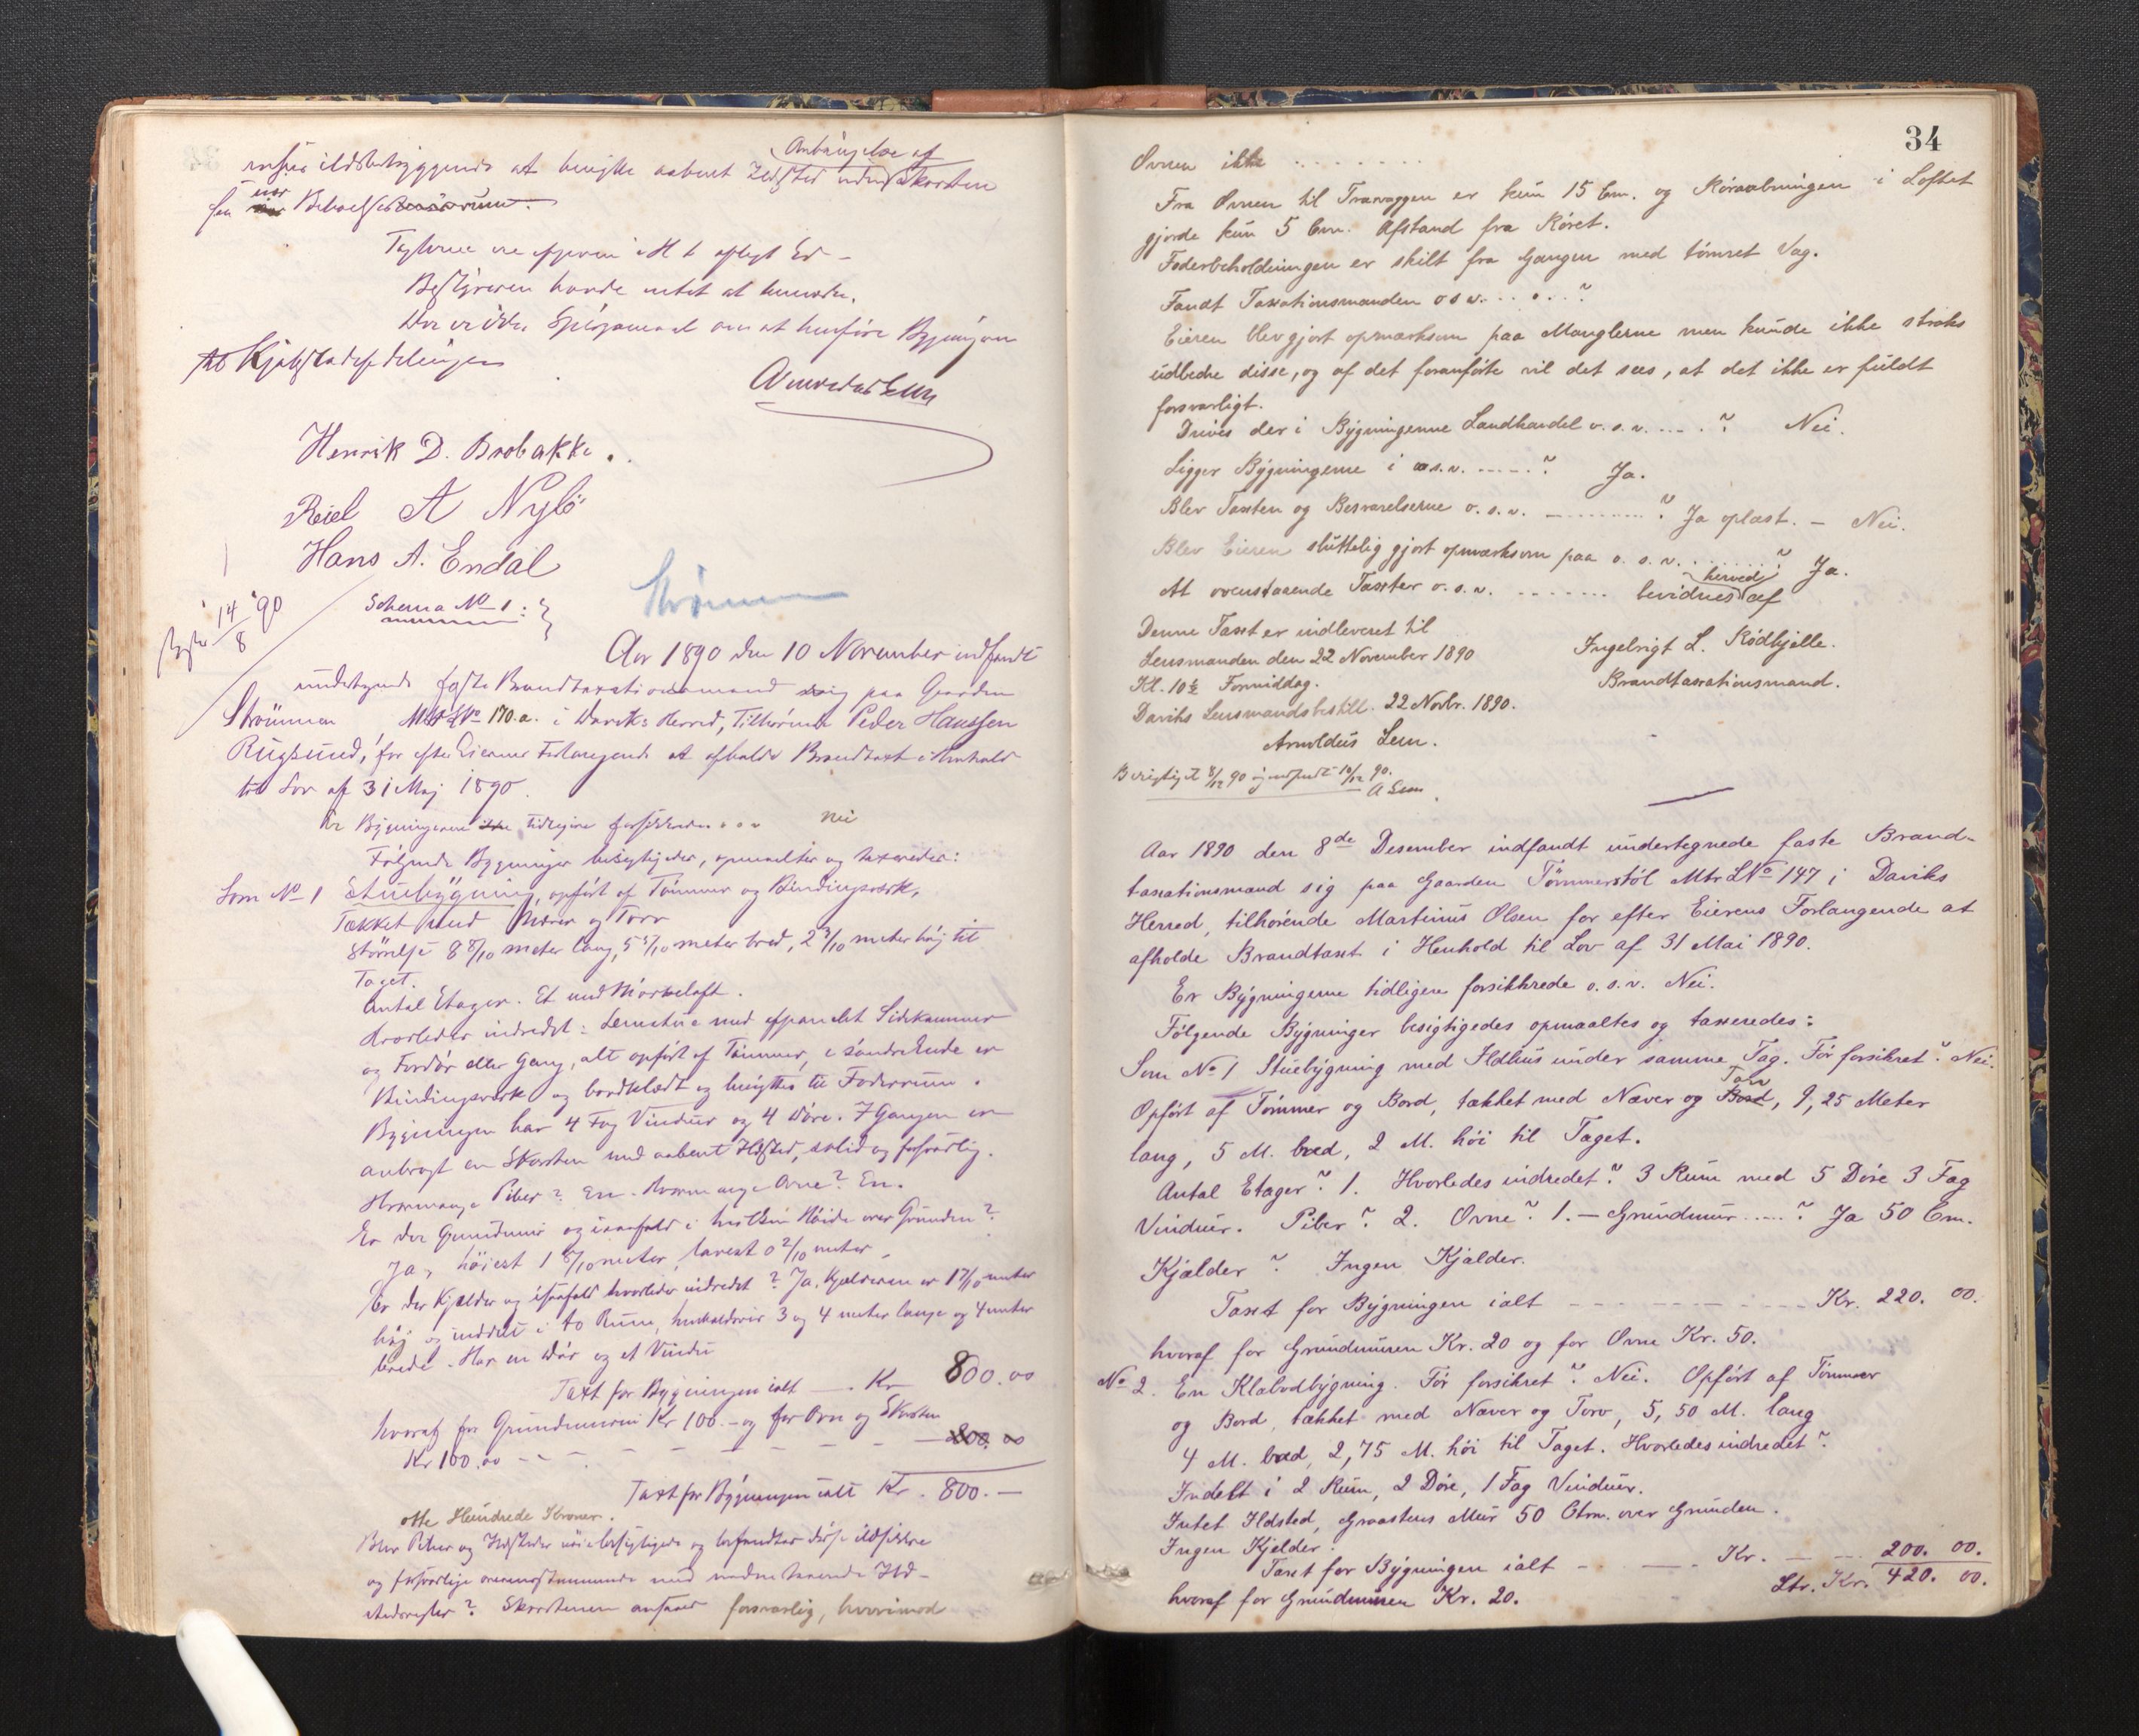 ildsbetryggende at benytte aabent Ildsted uden Anbringelse af Skorsten
Taxterne ere afgivne i H. t. aflagt Ed –
Bestyreren havde intet at bemærke.
Der er ikke Spørgsmaal om at henføre Bygningen
til Kjøbstadafdelingen
Arnoldus Lem
Henrik D. Brobakke.
Reiel A Nylø
Hans A. Endal
14/8 90
Schema No 1:
Strømmen
Aar 1890 den 10 November indfandt
undertegnede faste Brandtaxationsmand sig paa Gaarden
Strømmen Mtr L No 170.a. i Daviks Herred, Tilhørende Peder Hanssen
Rugsund, for efter Eierens Forlangende at afholde Brandtaxt i Henhold
til Lov af 31 Maj 1890.
Er Bygningerne tidligere forsikrede... Nei
Følgende Bygninger besigtigedes, opmaaltes og taxeredes:
Som No 1 Stuebygning, opført af Tømmer og Bindingsværk,
Tækket med Næver og Torv
Størrelse 8 8/10 meter lang, 5 5/10 meter bred, 2 3/10 meter høj til
Taget.
Antal Etager. Et med Mørkeloft.
Hvorledes indredet: Lemstue med afpanelet Sidekammer
og Fordør eller Gang, alt opført af Tømmer, i søndre Ende er
Bindingsværk og bordklædt og benyttes til Foderrum.
Bygningen har 4 Fag Vinduer og 4 Døre. I Gangen er
anbragt en Skorsten med aabent Ildsted, solid og forsvarlig.
Hvormange Piber? En. Hvormange Ovne? En.
Er der Grundmur og isaafald i hvilken Høide over Grunden?
Ja, høiest 1 8/10 meter, lavest 0 2/10 meter.
Er der Kjælder og isaafald hvorledes indredet? Ja, Kjælderen er 1 7/10 meter
høj og inddelt i to Rum, henholdsvis 3 og 4 meter lange og 4 meter
brede. Har en Dør og et Vindu
Taxt for Bygningen ialt — . Kr 800.00
hvoraf for Grundmuren Kr 100.– og for Ovn og Skorsten
Kr 100.00 - - - 200.00
Taxt for Bygningen ialt Kr. 800.–
otte Hundrede Kroner.
Blev Piber og Ildsteder nøie besigtigede og befandtes disse ildsikkre
og forsvarlige overensstemmende med nedenstaaende Ild-
stedsregler? Skorstenen ansaaes forsvarlig, hvorimod
34
Ovnen ikke ........
Fra Ovnen til Trævæggen er kun 15 Cm. og Røraabningen i Loftet
gjorde kun 5 Cm. Afstand fra Røret.
Foderbeholdningen er skilt fra Gangen med tømret Væg.
Fandt Taxationsmanden osv......?
Eieren blev gjort opmærksom paa Manglerne men kunde ikke straks
udbedre disse, og af det foranførte vil det sees, at det ikke er fuldt
forsvarligt.
Drives der i Bygningerne Landhandel o.s.v. ....? Nei.
Ligger Bygningerne i o.s.v. .....? Ja.
Blev Taxten og Besvarelserne o.s.v. ........? Ja oplæst. – Nei.
Blev Eieren sluttelig gjort opmærksom paa o.s.v. ......? Ja.
At ovenstaaende Taxter o.s.v. ....... bevidnes herved af
Denne Taxt er indleveret til
Lensmanden den 22 November 1890
Kl. 10½ Formiddag.
Daviks Lensmandsbestill. 22 Novbr. 1890.
Arnoldus Lem.
Ingebrigt L. Rødkjelle.
Brandtaxationsmand.
Berigtiget 8/12 90 igjenindsendt 10/12 90.
A Lem.
Aar 1890 den 8de Desember indfandt undertegnede faste Brand-
taxationsmand sig paa Gaarden Tømmerstøl Mtr LNo 147 i Daviks
Herred, tilhørende Martinus Olsen for efter Eierens Forlangende at
afholde Brandtaxt i Henhold til Lov af 31 Mai 1890.
Er Bygningerne tidligere forsikkrede o.s.v. Nei.
Følgende Bygninger besigtigedes opmaaltes og taxeredes:
Som No 1 Stuebygning med Ildhus under samme Tag. Før forsikret? Nei.
Opført af Tømmer og Bord, tækket med Næver og Bord Torv, 9,25 Meter
lang, 5 M. bred, 2 M. høi til Taget.
Antal Etager? 1. Hvorledes indredet? 3 Rum med 5 Døre 3 Fag
Vinduer. Piber? 2. Ovne? 1. – Grundmur .....? Ja 50 Cm.
Kjælder? Ingen Kjælder.
Taxt for Bygningen ialt - - - - - Kr. 220. 00.
hvoraf for Grundmuren Kr. 20 og for Ovne Kr. 50.
No 2. En Klæbodbygning. Før forsikret? Nei. Opført af Tømmer
og Bord, tækket med Næver og Torv, 5,50 M. lang
4 M. bred, 2,75 M. høi til Taget. Hvorledes indredet?
Indelt i 2 Rum, 2 Døre, 1 Fag Vinduer.
Intet Ildsted, Graastens Mur 50 Ctm. over Grunden.
Ingen Kjelder.
Taxt for Bygningen ialt - — - Kr. — 200. 00.
hvoraf for Grundmuren Kr. 20. Ltr. Kr. 420. 00.